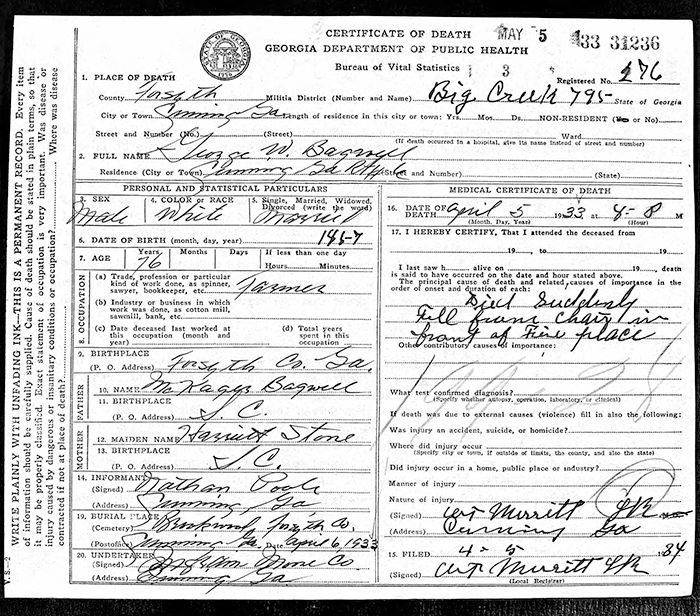 CERTIFICATE OF DEATH MAY 5 '33 31236
GEORGIA DEPARTMENT OF PUBLIC HEALTH
Bureau of Vital Statistics
STATE OF GEORGIA
1776
1 3
Registered No. 276
1. PLACE OF DEATH
County Forsyth Militia District (Number and Name) Big Creek 795 State of Georgia
City or Town Cumming Ga. Length of residence in this city or town: Yrs. Mos. Ds. NON-RESIDENT (Yes or No)
Street and Number (No.) (Street) Ward
(If death occurred in a hospital, give its name instead of street and number)
2. FULL NAME George W. Bagwell
Residence (City or Town) Cumming Ga (Street and Number) (State)
PERSONAL AND STATISTICAL PARTICULARS
3. SEX Male
4. COLOR OR RACE White
5. Single, Married, Widowed, Divorced (write the word) Married
6. DATE OF BIRTH (month, day, year) 1857
7. AGE Years 76 Months Days If less than one day
Hours Minutes
8. OCCUPATION
(a) Trade, profession or particular
kind of work done, as spinner,
sawyer, bookkeeper, etc. Farmer
(b) Industry or business in which
work was done, as cotton mill,
sawmill, bank, etc.
(c) Date deceased last worked at
this occupation (month and
year)
(d) Total years
spent in this
occupation
9. BIRTHPLACE
(P. O. Address) Forsyth Co. Ga.
FATHER
10. NAME Bagwell
11. BIRTHPLACE
(P. O. Address) S. C.
MOTHER
12. MAIDEN NAME Harriett Stone
13. BIRTHPLACE
(P. O. Address) S. C.
14. INFORMANT
(Signed) Nathan Poole
(Address) Cumming, Ga
19. BURIAL PLACE
(Cemetery) Forsyth Co.
(Postoffice) Cumming Ga. Date April 6 1933
20. UNDERTAKER
(Signed) Co.
(Address) Cumming Ga
MEDICAL CERTIFICATE OF DEATH
16. DATE OF
DEATH April 5 1933 at 4-8 M
(Month, Day, Year) (Hour)
17. I HEREBY CERTIFY, That I attended the deceased from
19 to 19
I last saw h alive on 19, death
is said to have occurred on the date and hour stated above.
The principal cause of death and related causes of importance in
order of onset and duration of each:
Died Suddenly
Fell from chair in
front of Fire place
Other contributory causes of importance:
What test confirmed diagnosis?
(Specify whether autopsy, operation, laboratory, or clinical)
If death was due to external causes (violence) fill in also the following:
Was injury an accident, suicide, or homicide?
Where did injury occur
(Specify city or town, if outside of limits, the county, and also the state)
Did injury occur in a home, public place or industry?
Manner of injury
Nature of injury
(Signed) Merritt LR
(Address) Cumming Ga
15. FILED 4-5 1934
(Signed) Merritt LR
(Local Registrar)
WRITE PLAINLY WITH UNFADING INK—THIS IS A PERMANENT RECORD. Every item
of information should be carefully supplied. Cause of death should be stated in plain terms, so that
it may be properly classified. Exact statement of occupation is very important. Was disease or
injury caused by dangerous or insanitary conditions or occupation? Where was disease
contracted if not at place of death?
V. S.—2